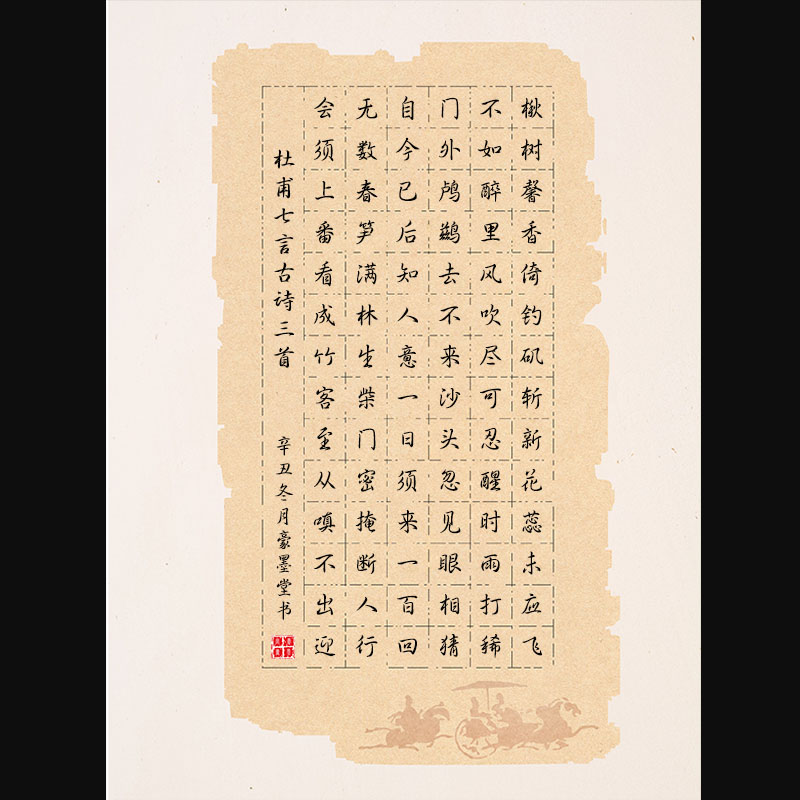 楸树馨香倚钓矶斩新花蕊未应飞
不如醉里风吹尽可忍醒时雨打稀
门外鸬鹚去不来沙头忽见眼相猜
自今已后知人意一日须来一百回
无数春笋满林生柴门密掩断人行
会须上番看成竹客至从嗔不出迎
杜甫七言古诗三首
辛丑冬月豪墨堂书